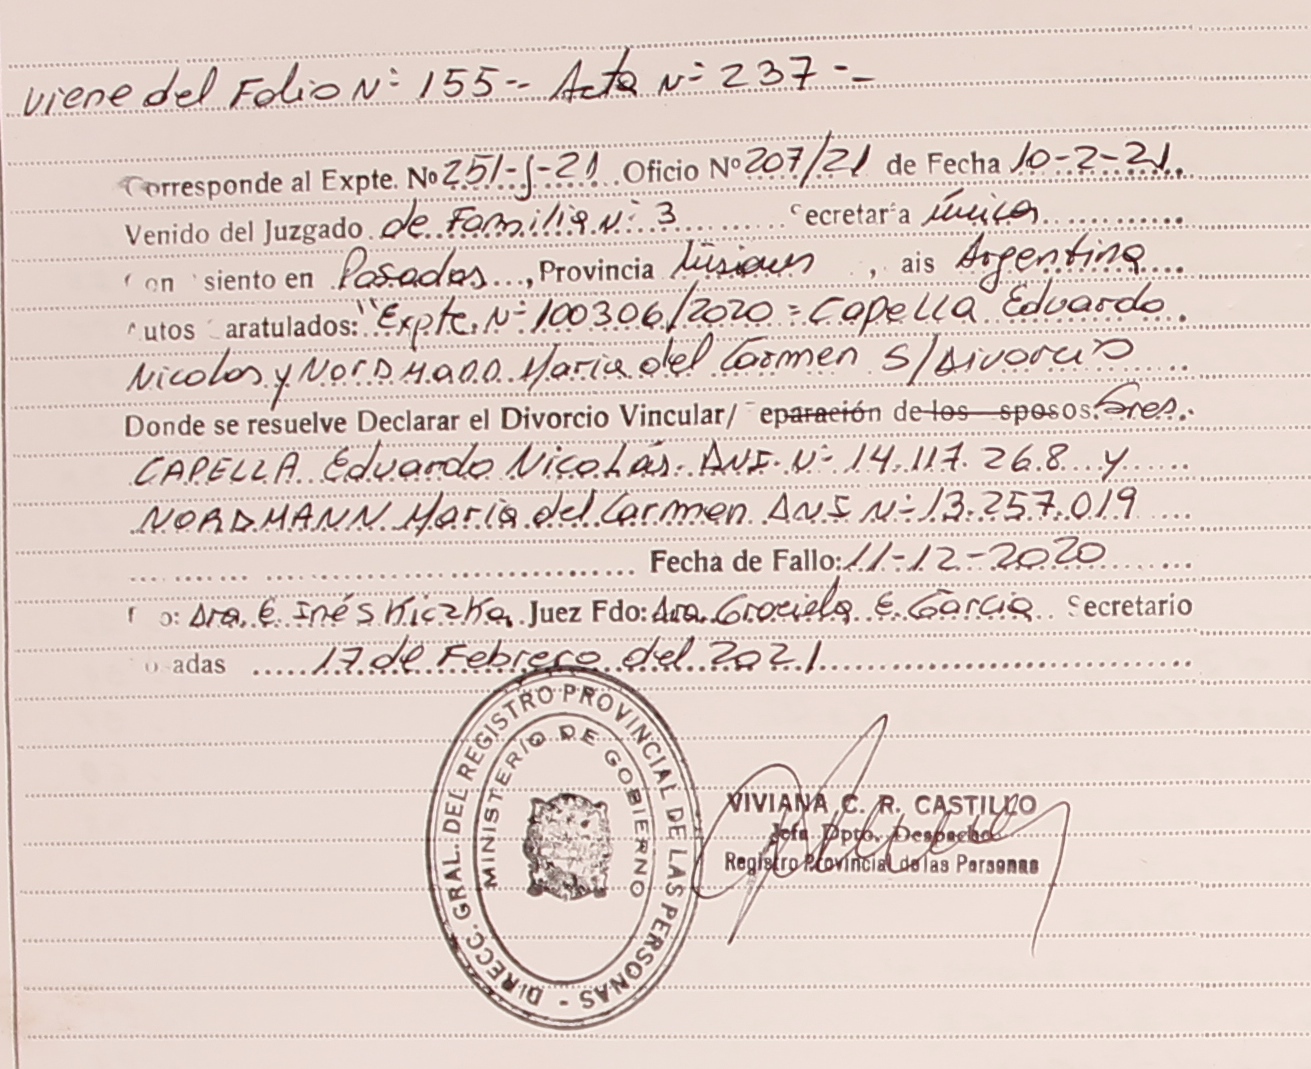 viene del Folio Nº 155-- Acta Nº 237--
Corresponde al Expte. Nº 251-J-21 Oficio Nº 207/21 de Fecha 10-2-21.
Venido del Juzgado de Familia Nº 3 ecretar a única
on siento en Posadas, Provincia Misiones, ais Argentina
utos aratulados: "Expte. Nº 100306/2020 = Capella Eduardo
Nicolas y NORDMANN Maria del Carmen S/Divorcio
Donde se resuelve Declarar el Divorcio Vincular/ eparación de los sposos: Sres.
CAPELLA Eduardo Nicolás. DNI. Nº 14.117.268 y
NORDMANN Maria del Carmen DNI Nº 13.257.019
Fecha de Fallo: 11-12-2020
o: Dra. E. Inés Kiczka. Juez Fdo: Dra. Graciela E. Garcia Secretario
o adas 17 de Febrero del 2021
DIRECC. GRAL. DEL REGISTRO PROVINCIAL DE LAS PERSONAS -
MINISTERIO DE GOBIERNO
VIVIANA C. R. CASTILLO
Jefa Dpto. Despacho
Registro Provincial de las Personas